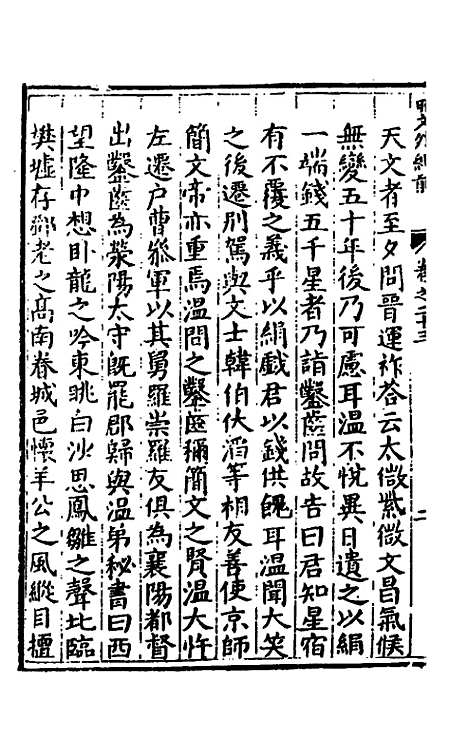 卷之二十三
二
天文者至夕問晉運祚荅云太微紫微文昌氣候
無變五十年後乃可慮耳溫不悅異日遺之以絹
一端錢五千星者乃詣鑿齒問故告曰君知星宿
有不覆之義乎以絹戲君以錢供愧耳溫聞大笑
之後遷别駕與文士韓伯伏滔等相友善使京師
簡文帝亦重焉溫問之鑿齒稱簡文之賢溫大忤
左遷户曹叅軍以其舅羅崇羅友俱為襄陽都督
出鑿齒為滎陽太守旣罷郡歸與溫弟秘書曰西
望隆中想卧龍之吟東眺白沙思鳳雛之聲北臨
樊墟存鄧老之高南眷城邑懷羊公之風縱目檀